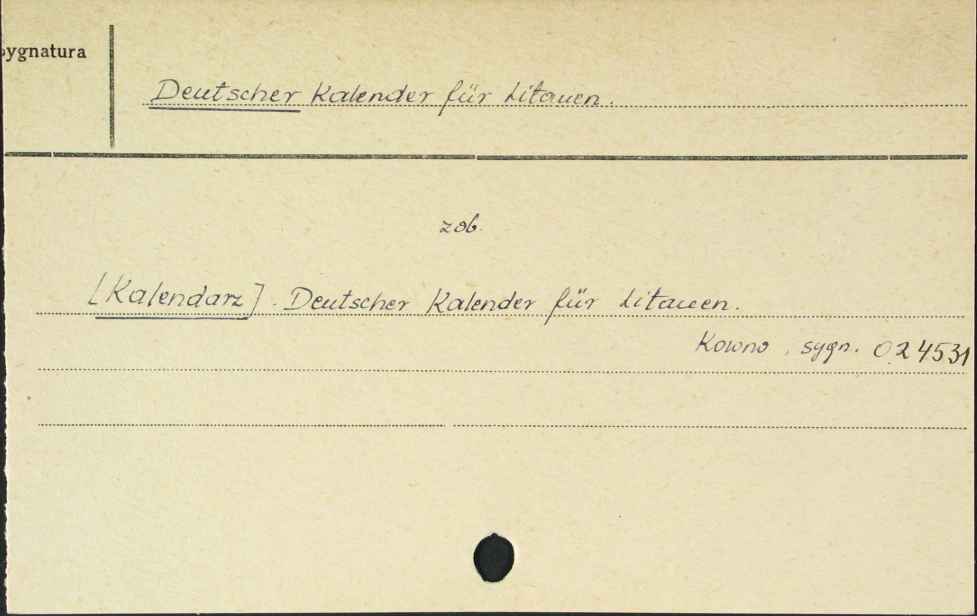 Sygnatura
Deutscher Kalender für Litauen.
zob.
[Kalendarz]. Deutscher Kalender für Litauen.
Kowno, sygn. 024531